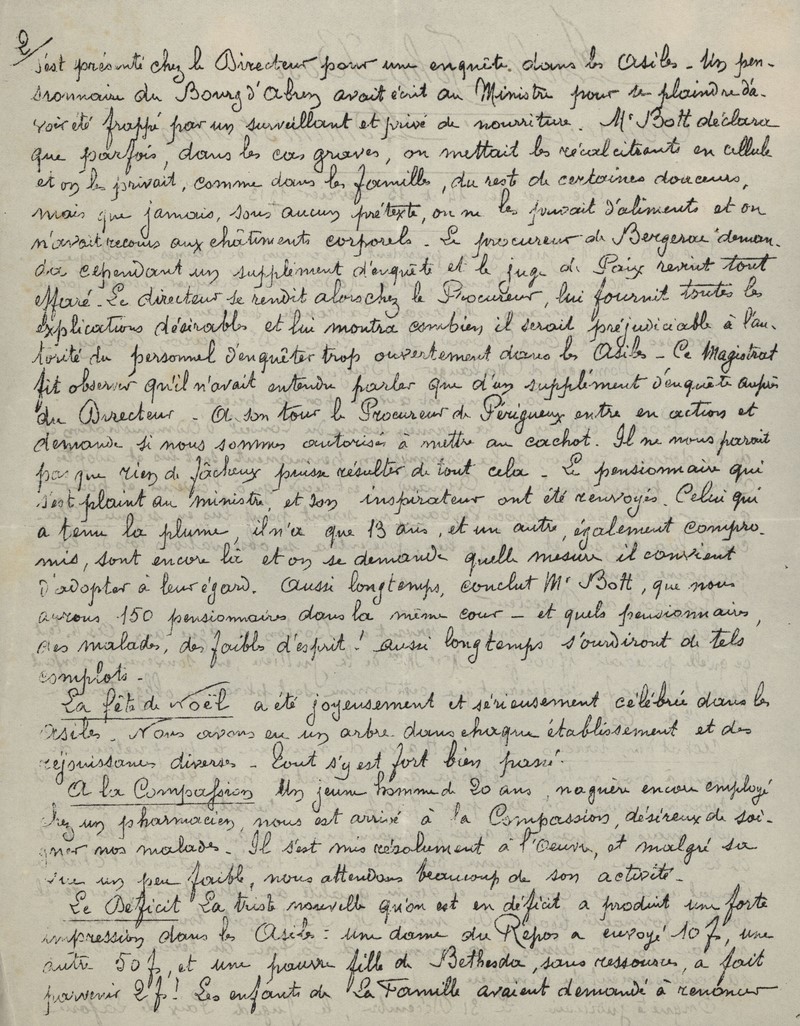 2/
s'est présenté chez le Directeur pour une enquête dans les Asiles - Un pen-
sionnaire du Bourg d'Abren avait écrit au Ministre pour se plaindre d'a-
voir été frappé par un surveillant et privé de nourriture. Mr Bott déclara
que parfois, dans les cas graves, on mettait les récalcitrants en cellule
et on les privait, comme dans les familles, du reste de certaines douceurs,
mais que jamais, sous aucun prétexte, on ne les privait d'aliments et on
n'avait recours aux châtiments corporels - Le procureur de Bergerac deman-
da cependant un supplément d'enquête et le juge de Paix revint tout
effaré - Le directeur se rendit alors chez le Procureur, lui fournit toutes les
explications désirables et lui montra combien il serait préjudiciable à l'au-
torité du personnel d'enquêter trop ouvertement dans les Asiles - Ce Magistrat
fit observer qu'il n'avait entendu parler que d'un supplément d'enquête auprès
du Directeur - A son tour le Procureur de Périgueux entre en action et
demande si nous sommes autorisés à mettre au cachot. Il ne nous paraît
pas que rien de fâcheux puisse résulter de tout cela - Le pensionnaire qui
s'est plaint au ministre, et son inspirateur ont été renvoyés. Celui qui
a tenu la plume, il n'a que 13 ans, et un autre, également compro-
mis, sont encore là et on se demande quelle mesure il convient
d'adopter à leur égard. Aussi longtemps, conclut Mr Bott, que nous
aurons 150 pensionnaires dans la même cour - et quels pensionnaires,
des malades, des faibles d'esprit! aussi longtemps s'ourdiront de tels
complots -
La fête de Noël a été joyeusement et sérieusement célébrée dans les
Asiles - Nous avons eu un arbre dans chaque établissement et des
réjouissances diverses - Tout s'y est fort bien passé.
A la Compassion Un jeune homme de 20 ans, naguère encore employé
chez un pharmacien, nous est arrivé à la Compassion, désireux de soi-
gner nos malades - Il s'est mis résolument à l'Oeuvre, et malgré sa
vue un peu faible, nous attendons beaucoup de son activité -
Le Déficit La triste nouvelle qu'on est en déficit a produit une forte
impression dans les Asiles: une dame du Repos a envoyé 10 f, une
autre 50 f, et une pauvre fille de Bethesda, sans ressources, a fait
parvenir 2 f! Les enfants de La Famille avaient demandé à renoncer